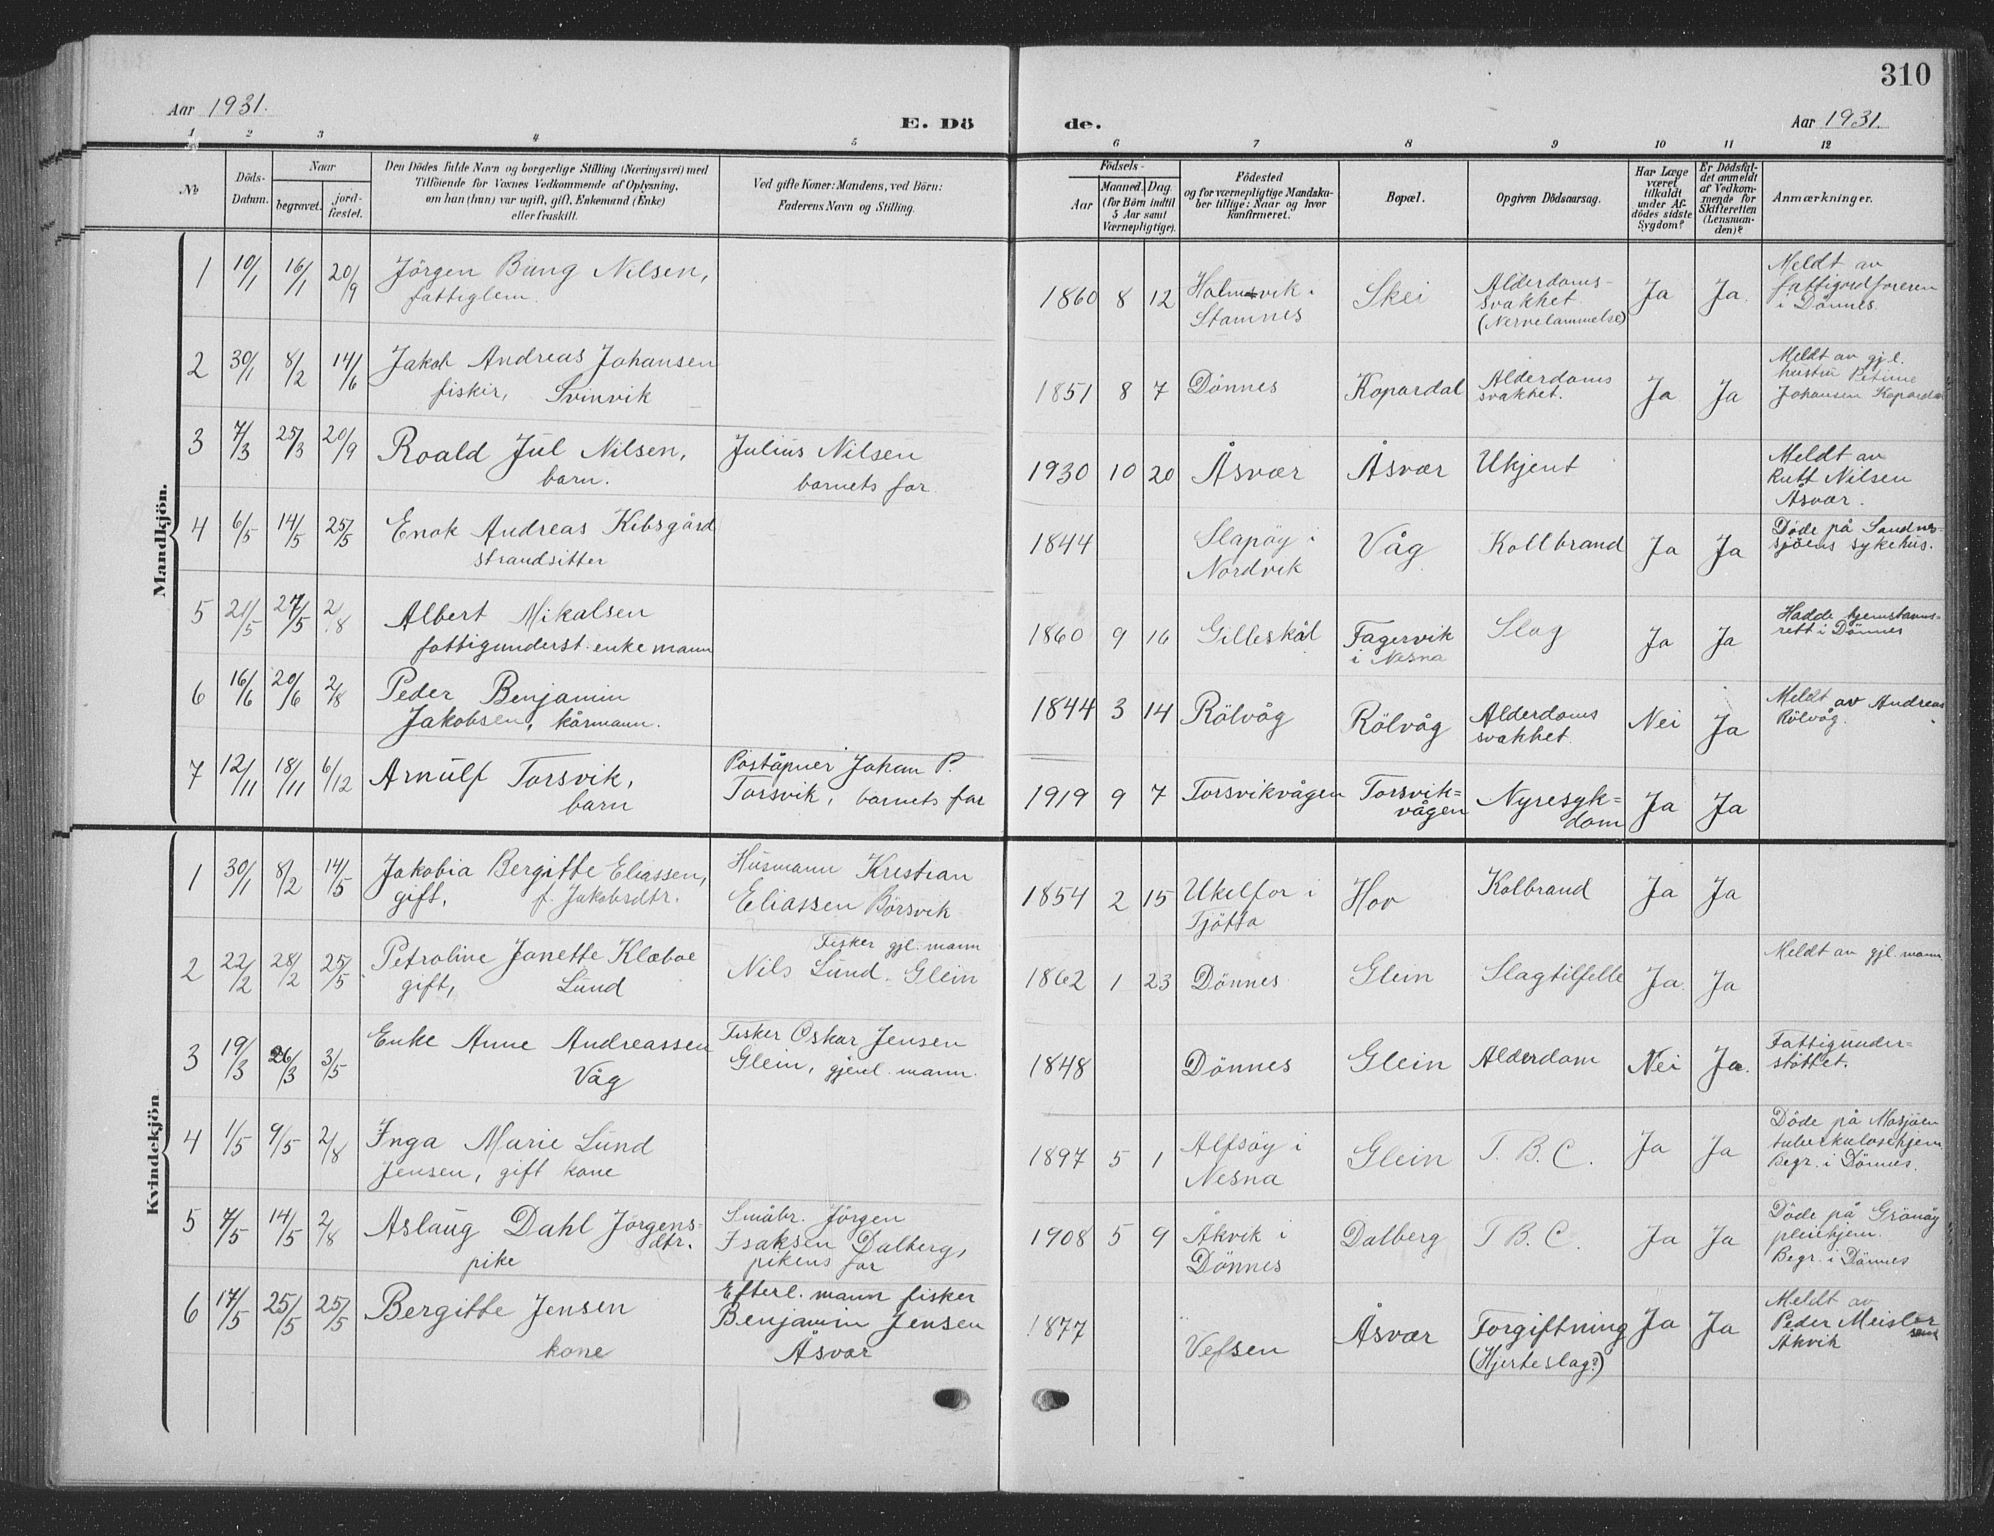 310
Aar 1931.
E. Dö
de.
Aar 1931.
1 2 3 4 5 6 7 8 9 10 11 12
No
Döds-
Datum.
Naar
begravet.
jord-
fæstet.
Den Dödes fulde Navn og borgerlige Stilling (Næringsvei) med
Tilföiende for Voxnes Vedkommende af Oplysning,
om han (hun) var ugift, gift, Enkemand (Enke)
eller fraskilt.
Ved gifte Koner: Mandens, ved Börn:
Faderens Navn og Stilling.
Födsels-
Aar
Maaned. Dag.
(for Börn indtil
5 Aar samt
Værnepligtige).
Födested
og for værnepligtige Mandska-
ber tillige: Naar og hvor
konfirmeret.
Bopæl.
Opgiven Dödsaarsag.
Har Læge
været
tilkaldt
under Af-
dödes sidste
Sygdom?
Er Dödsfal-
det anmeldt
af Vedkom-
mende for
Skifteretten
(Lensman-
den)?
Anmærkninger.
Mandkjön.
1 10/1 16/1 20/9 Jörgen Bang Nilsen,
fattiglem.
1860 8 12 Holmsvik i
Stamnes
Skei
Alderdoms-
svakhet
(Nervelammelse)
Ja Ja.
Meldt av
fattigordföreren
i Dönnes.
2 30/1 8/2 14/6 Jakob Andreas Johansen
fisker, Svinvik
1851 8 7 Dönnes Kopardal Alderdoms
svakhet.
Ja Ja
Meldt av gjl.
hustru Petrine
Johansen Kopardal
3 7/3 25/3 20/9 Roald Jul Nilsen,
barn.
Julius Nilsen
barnets far.
1930 10 20 Åsvær Åsvær Ukjent
Meldt av
Nilsen
Åsvær.
4 6/5 14/5 25/5 Enok Andreas Kibsgård
strandsitter
1844 Slapöy i
Nordvik
Våg. Kollbrand Ja Ja
Döde på Sandnes-
sjöens sykehus.
5 21/5 27/5 2/8 Albert Mikalsen
fattigunderst. enkemann
1860 9 16 Gilleskål Fagervik
i Nesna
Slag Ja Ja
Hadde hjemstavns-
rett i Dönnes
6 16/6 20/6 2/8 Peder Benjamin
Jakobsen, kårmann.
1844 3 14 Rölvåg Rölvåg Alderdoms
svakhet
Nei Ja
Meldt av Andreas
Rölvåg.
7 12/11 18/11 6/12 Arnulf Torsvik,
barn
Poståpner Johan P.
Torsvik, barnets far
1919 9 7 Torsvikvågen Torsvik=
vågen
Nyresyk=
dom
Ja Ja
Kvindekjön
1 30/1 8/2 14/5 Jakobia Bergitte Eliassen,
gift, f. Jakobsdtr.
Husmann Kristian
Eliassen Börsvik
1854 2 15 Ukelfor i
Tjötta
Hov Kolbrand Ja Ja
2 22/2 28/2 25/5 Petroline Janette Klæboe
gift, Lund
Fisker gjl. mann
Nils Lund. Glein
1862 1 23 Dönnes Glein Slagtilfelle Ja. Ja
Meldt av gjl. mann
3 19/3 26/3 3/5 Enke Anne Andreassen
Våg
Fisker Oskar Jensen
Glein, gjenl. mann.
1848 Dönnes Glein Alderdom Nei Ja.
Fattigunder-
stöttet.
4 1/5 9/5 2/8 Inga Marie Lund
Jensen, gift kone
1897 5 1 Alfsöy i
Nesna
Glein T.B.C. Ja Ja
Döde på Mosjöen
tuberkulosehjem
Begr. i Dönnes.
5 7/5 14/5 2/8 Aslaug Dahl Jörgens-
dtr.
pike
Småbr. Jörgen
Isaksen Dalberg,
pikens far
1908 5 9 Åkvik i
Dönnes
Dalberg T.B.C. Ja Ja
Döde på Grönöy
pleiehjem.
Begr. i Dönnes
6 17/5 25/5 25/5 Bergitte Jensen
kone
Efterl. mann fisker
Benjamin Jensen
Åsvær
1877 Vefsen Åsvær Forgiftning
(Hjerteslag?)
Ja Ja
Meldt av
Peder Meisler
Åkvik